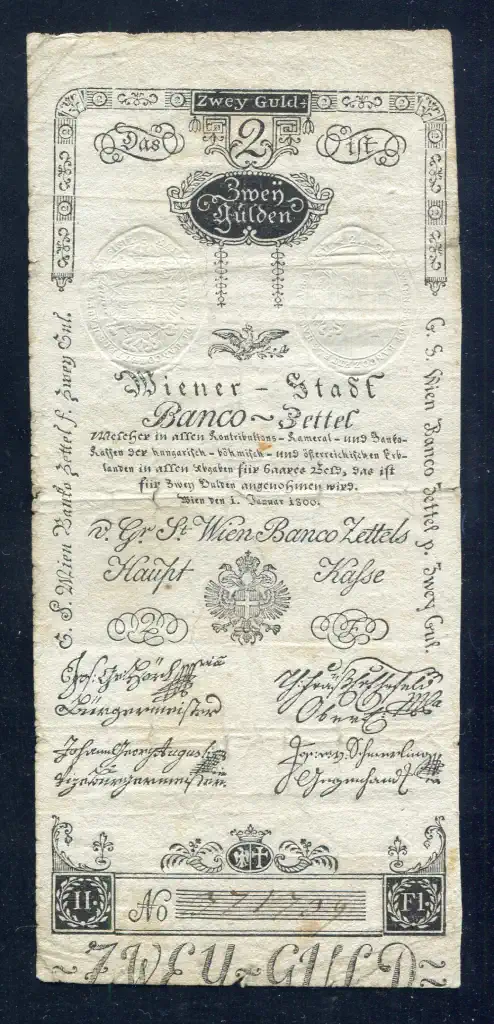 Zwey Guld
Das 2 ist
Zwey
Gulden
Wiener - Stadt
Banco ~ Zettel
Welcher in allen Kontributions- Kameral- und Banko-
Kassen der hungarisch- böhmisch- und österreichischen Erb-
landen in allen Abgaben für baares Geld, das ist
für Zwey Gulden angenohmen wird.
Wien den 1. Januar 1800.
v. Gr St Wien Banco Zettels
Haupt Kasse
2 F
G. S. Wien Banko Zettel f. Zwey Gul.
G. S. Wien Banco Zettel p. Zwey Gul.
Bürgermeister
Johann Georg August
Vizebürgermeister
Gegenhand
II. Fl.
No 371739
ZWEY ~ GULD